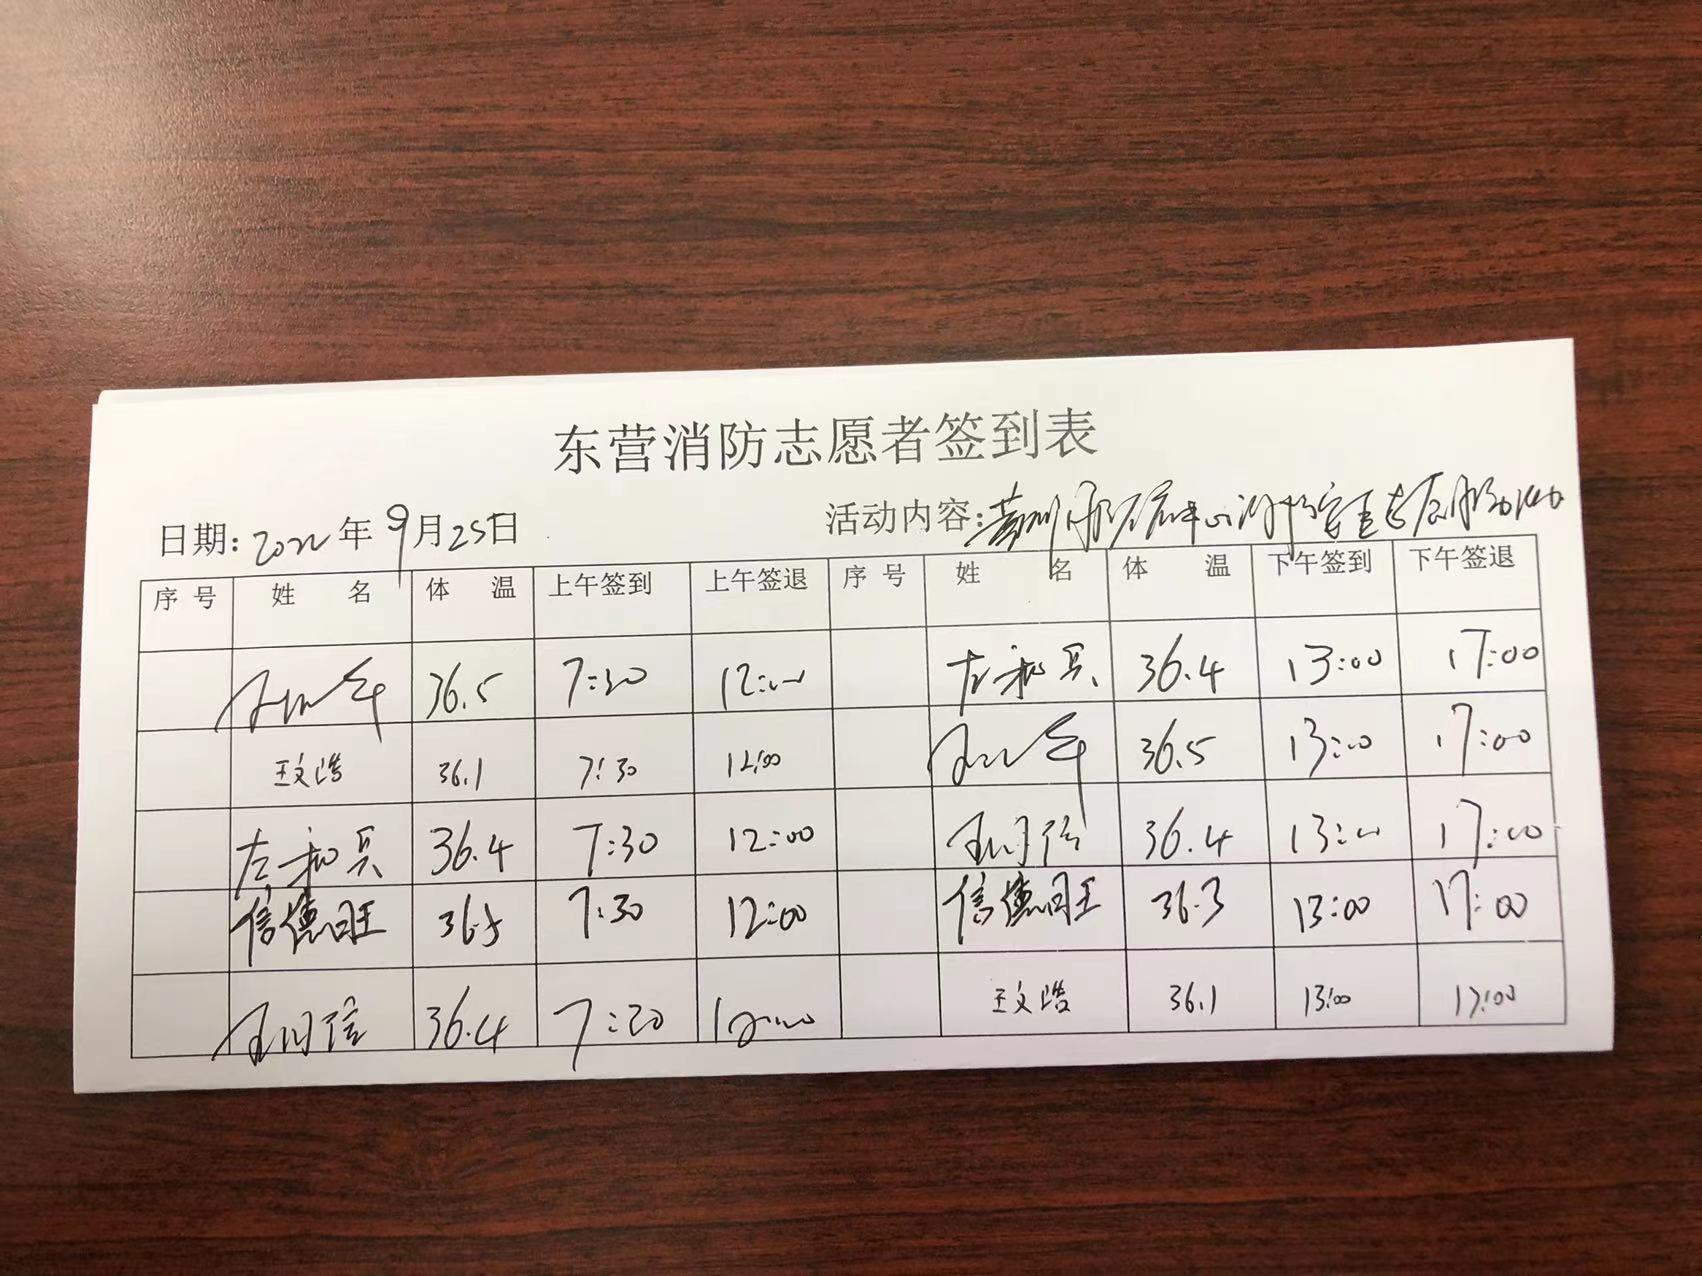 东营消防志愿者签到表
日期: 2022年9月25日 活动内容:
序号 姓 名 体 温 上午签到 上午签退 序号 姓 名 体 温 下午签到 下午签退
36.5 7:30 12:00 左和兵 36.4 13:00 17:00
王文浩 36.1 7:30 12:00 36.5 13:00 17:00
左和兵 36.4 7:30 12:00 36.4 13:00 17:00
信德旺 36.5 7:30 12:00 信德旺 36.3 13:00 17:00
36.4 7:30 12:00 王文浩 36.1 13:00 17:00